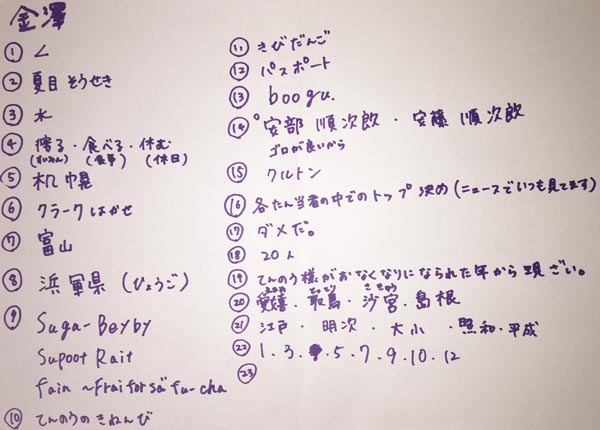 金澤
① く
② 夏目 そうせき
③ 水
④ 擦る・食べる・休む
(すいみん) (食事) (休日)
⑤ 机 幌
⑥ クラークはかせ
⑦ 富山
⑧ 浜軍県 (ひょうご)
⑨ Suga-Beyby
Supoot Rait
fain ~Fraiforsa fu-cha
⑩ てんのうのきねんび
⑪ きびだんご
⑫ パスポート
⑬ boogu.
⑭ 安部 順次郎・安藤 順次郎
ゴロが良いから
⑮ クルトン
⑯ 各たん当者の中でのトップ決め (ニュースでいつも見てます)
⑰ ダメだ。
⑱ 20人
⑲ てんのう様がおなくなりになられた年から現ざい。
⑳ ・ 取鳥・沙宮・島根
㉑ 江戸・明次・大小・照和・平成
㉒ 1.3.5.7.9.10.12
㉓